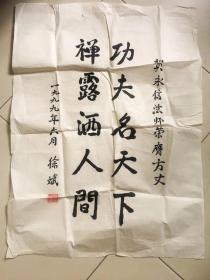 賀永信法師榮膺方丈
功夫名天下
禅露洒人間
一九九九年六月 徐斌